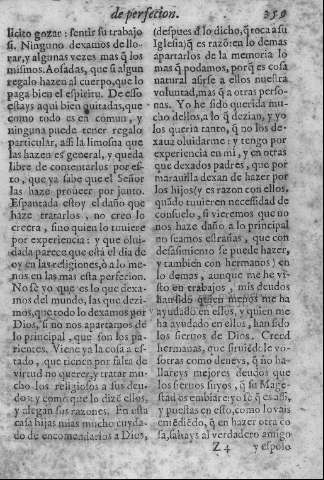 de perfecion. 359
licito gozar: sentir su trabajo
si. Ninguno dexamos de llo-
rar, y algunas vezes mas q̃ los
mismos. Aosadas, que si algun
regalo hazen al cuerpo, que lo
paga bien el espiritu. De esso
estays aqui bien quitadas, que
como todo es en comun, y
ninguna puede tener regalo
particular, assi la limosna que
las hazen es general, y queda
libre de contentarlos por es-
to, que ya sabe que el Señor
las haze proueer por junto.
Espantada estoy el daño que
haze tratarlos, no creo lo
creera, sino quien lo tuuiere
por experiencia: y que olui-
dada parece que està el dia de
oy en las religiones, ò a lo me-
nos en las mas esta perfecion.
No sè yo que es lo que dexa-
mos del mundo, las que dezi-
mos, que todo lo dexamos por
Dios, si no nos apartamos de
lo principal, que son los pa-
rientes. Viene ya la cosa a es-
tado, que tienen por falta de
virtud no querer, y tratar mu-
cho los religiosos a sus deu-
dos: y como que lo dizẽ ellos,
y alegan sus razones. En esta
casa hijas mias mucho cuyda-
do de encomendarlos a Dios,
(despues d̃ lo dicho, q̃ toca a su
Iglesia) q̃ es razõ: en lo demas
apartarlos de la memoria lo
mas q̃ podamos, porq̃ es cosa
natural asirse a ellos nuestra
voluntad, mas q̃ a otras perso-
nas. Yo he sido querida mu-
cho dellos, a lo q̃ dezian, y yo
los queria tanto, q̃ no los de-
xaua oluidarme: y tengo por
experiencia en mi, y en otras
que dexados padres, que por
marauilla dexan de hazer por
los hijos (y es razon con ellos,
quãdo tuuieren necessidad de
consuelo, si vieremos que no
nos haze daño a lo principal
no seamos estrañas, que con
desasimiento se puede hazer,
y tambien con hermanos) en
lo demas, aunque me he vi-
sto en trabajos, mis deudos
han sido quien menos me ha
ayudado en ellos, y quien me
ha ayudado en ellos, han sido
los sieruos de Dios. Creed
hermanas, que siruiẽdole vo-
sotras como deueys, q̃ no ha-
llareys mejores deudos que
los sieruos suyos, q̃ su Mage-
stad os embiare: yo sè q̃ es assi,
y puestas en esso, como lo vais
entẽdiẽdo, q̃ en hazer otra co
sa, faltays al verdadero amigo
Z 4 y esposo